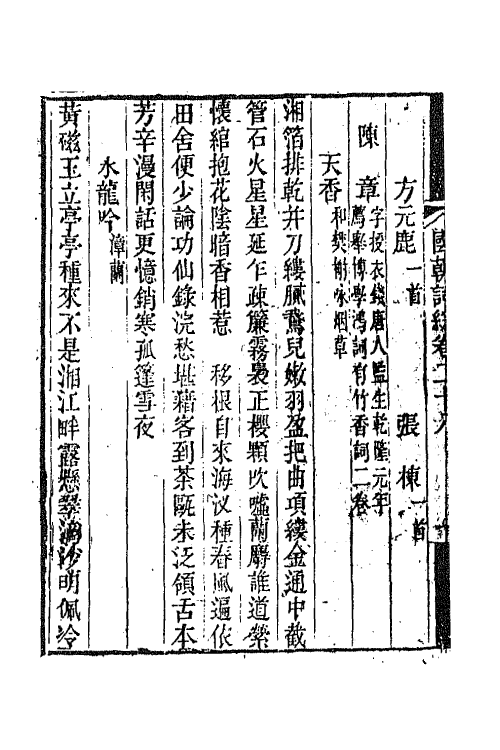 國朝詞綜卷二十八
方元鹿一首 張棟一首
陳章字授衣錢唐人監生乾隆元年薦舉博學鴻詞有竹香詞二卷
天香和樊榭咏烟草
湘箔排乾并刀縷膩鵞兒嫩羽盈把曲項縷金通中截
管石火星星延乍疎簾霧裊正櫻顆吹噓蘭麝誰道縈
懷綰抱花陰暗香相惹 移根自來海汊種春風遍依
田舍便少論功仙錄浣愁堪藉客到茶甌未泛領舌本
芳辛漫閒話更憶銷寒孤篷雪夜
水龍吟漳蘭
黃磁玉立亭亭種來不是湘江畔露懸翠滴沙明佩冷